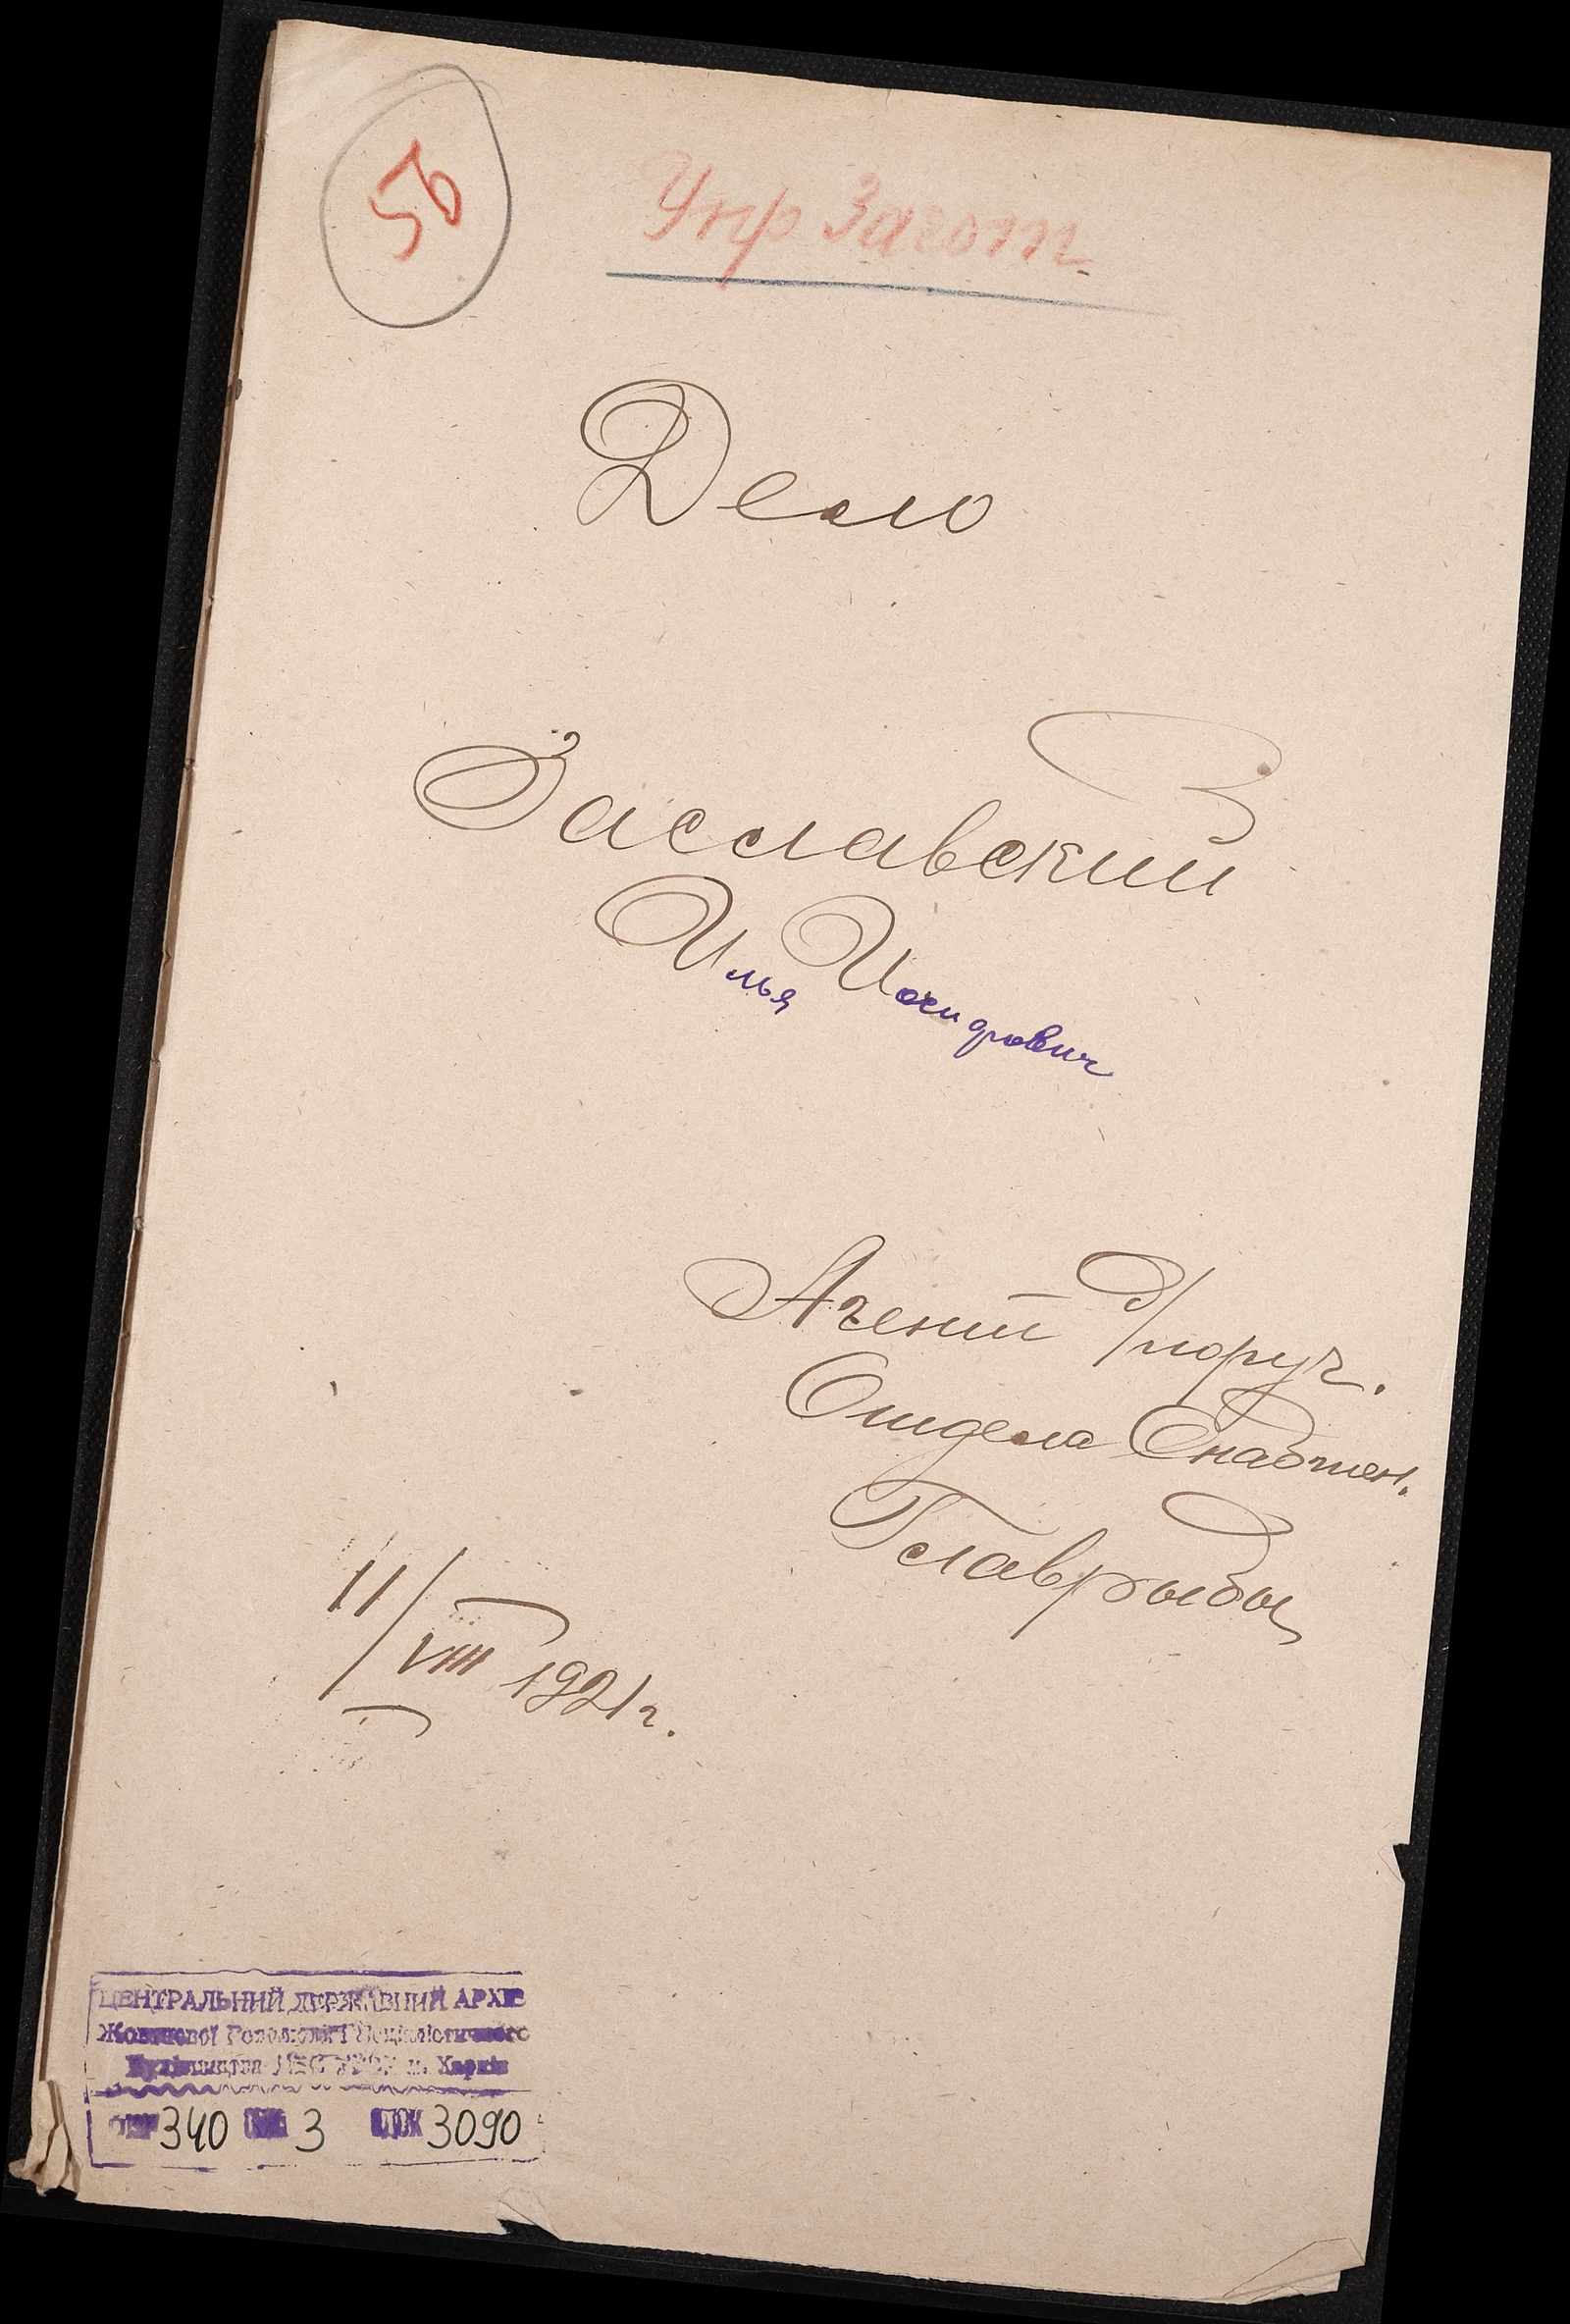 56
Упр Загот.
Дело
Заславский
Илья Иосифович
Агент д/поруч.
Отдела Снабжен.
Главрыбы
11/VIII 1921 г.
ЦЕНТРАЛЬНИЙ ДЕРЖАВНИЙ АРХІВ
Жовтневої Революції і Соціалістичного
Будівництва УРСР м. Харків
340 3 3090